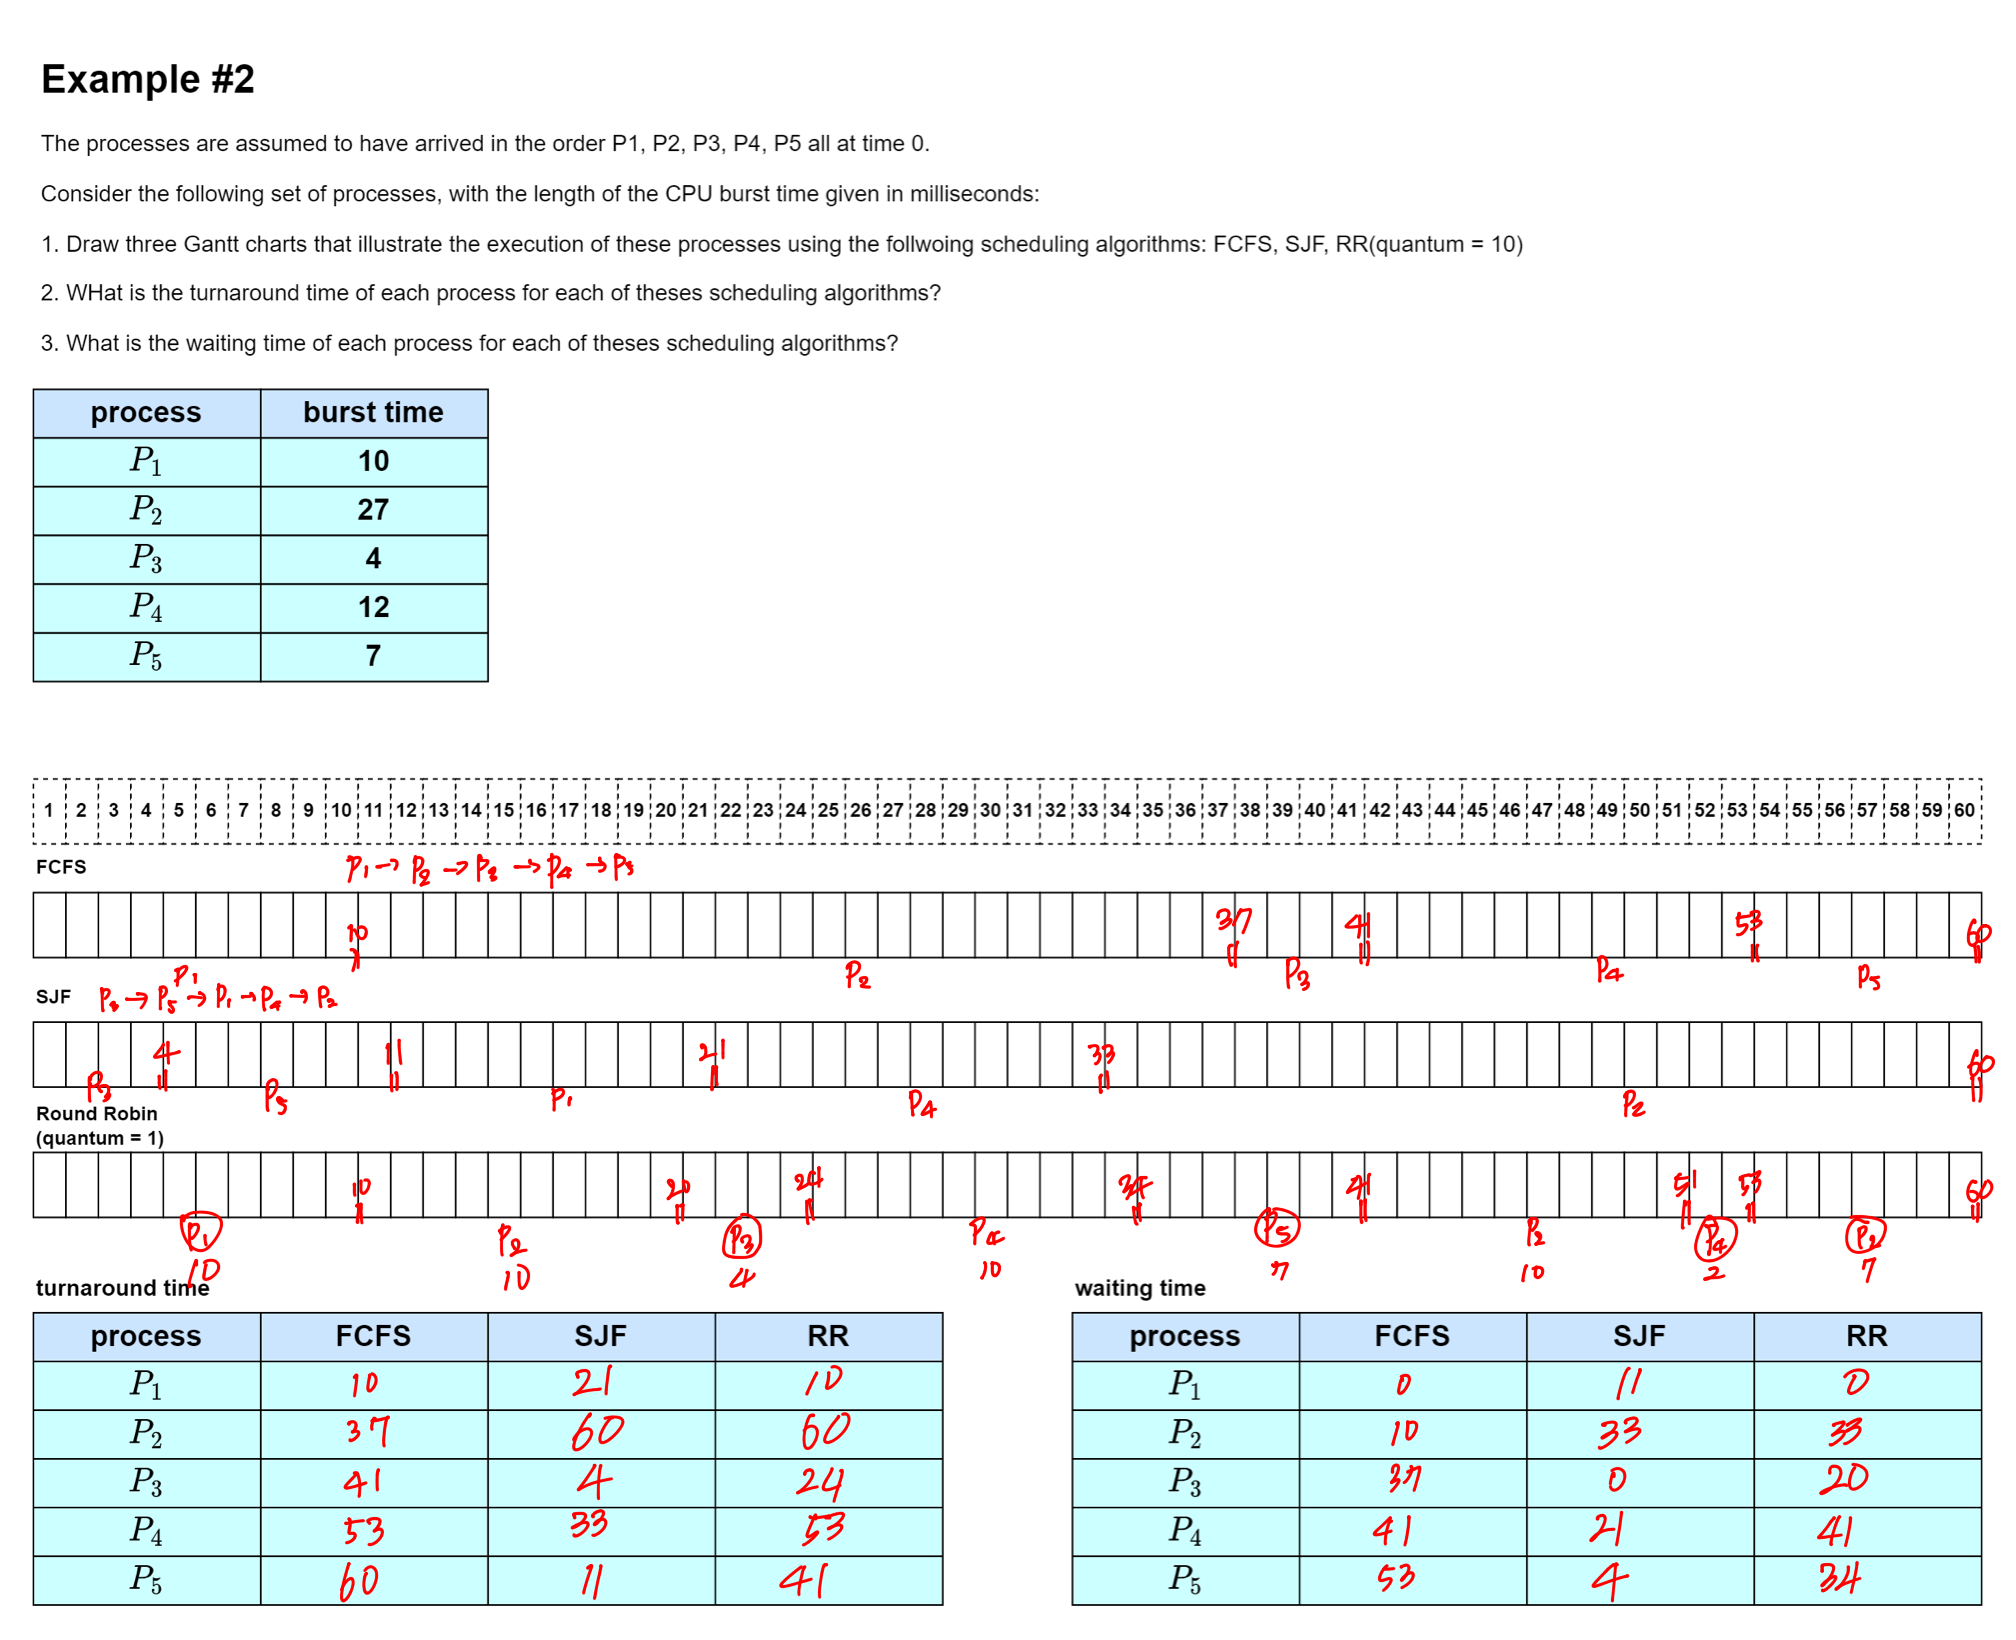 Example #2
The processes are assumed to have arrived in the order P1, P2, P3, P4, P5 all at time 0.
Consider the following set of processes, with the length of the CPU burst time given in milliseconds:
1. Draw three Gantt charts that illustrate the execution of these processes using the follwoing scheduling algorithms: FCFS, SJF, RR(quantum = 10)
2. WHat is the turnaround time of each process for each of theses scheduling algorithms?
3. What is the waiting time of each process for each of theses scheduling algorithms?
process burst time
P1 10
P2 27
P3 4
P4 12
P5 7
1 2 3 4 5 6 7 8 9 10 11 12 13 14 15 16 17 18 19 20 21 22 23 24 25 26 27 28 29 30 31 32 33 34 35 36 37 38 39 40 41 42 43 44 45 46 47 48 49 50 51 52 53 54 55 56 57 58 59 60
FCFS P1 → P2 → P3 → P4 → P5
10 37 41 53 60
P1 P2 P3 P4 P5
SJF P3 → P5 → P1 → P4 → P2
4 11 21 33 60
P3 P5 P1 P4 P2
Round Robin
(quantum = 1)
10 20 24 34 41 51 53 60
P1 P2 P3 P4 P5 P2 P4 P2
10 10 4 10 7 10 2 7
turnaround time
process FCFS SJF RR
P1 10 21 10
P2 37 60 60
P3 41 4 24
P4 53 33 53
P5 60 11 41
waiting time
process FCFS SJF RR
P1 0 11 0
P2 10 33 33
P3 37 0 20
P4 41 21 41
P5 53 4 34